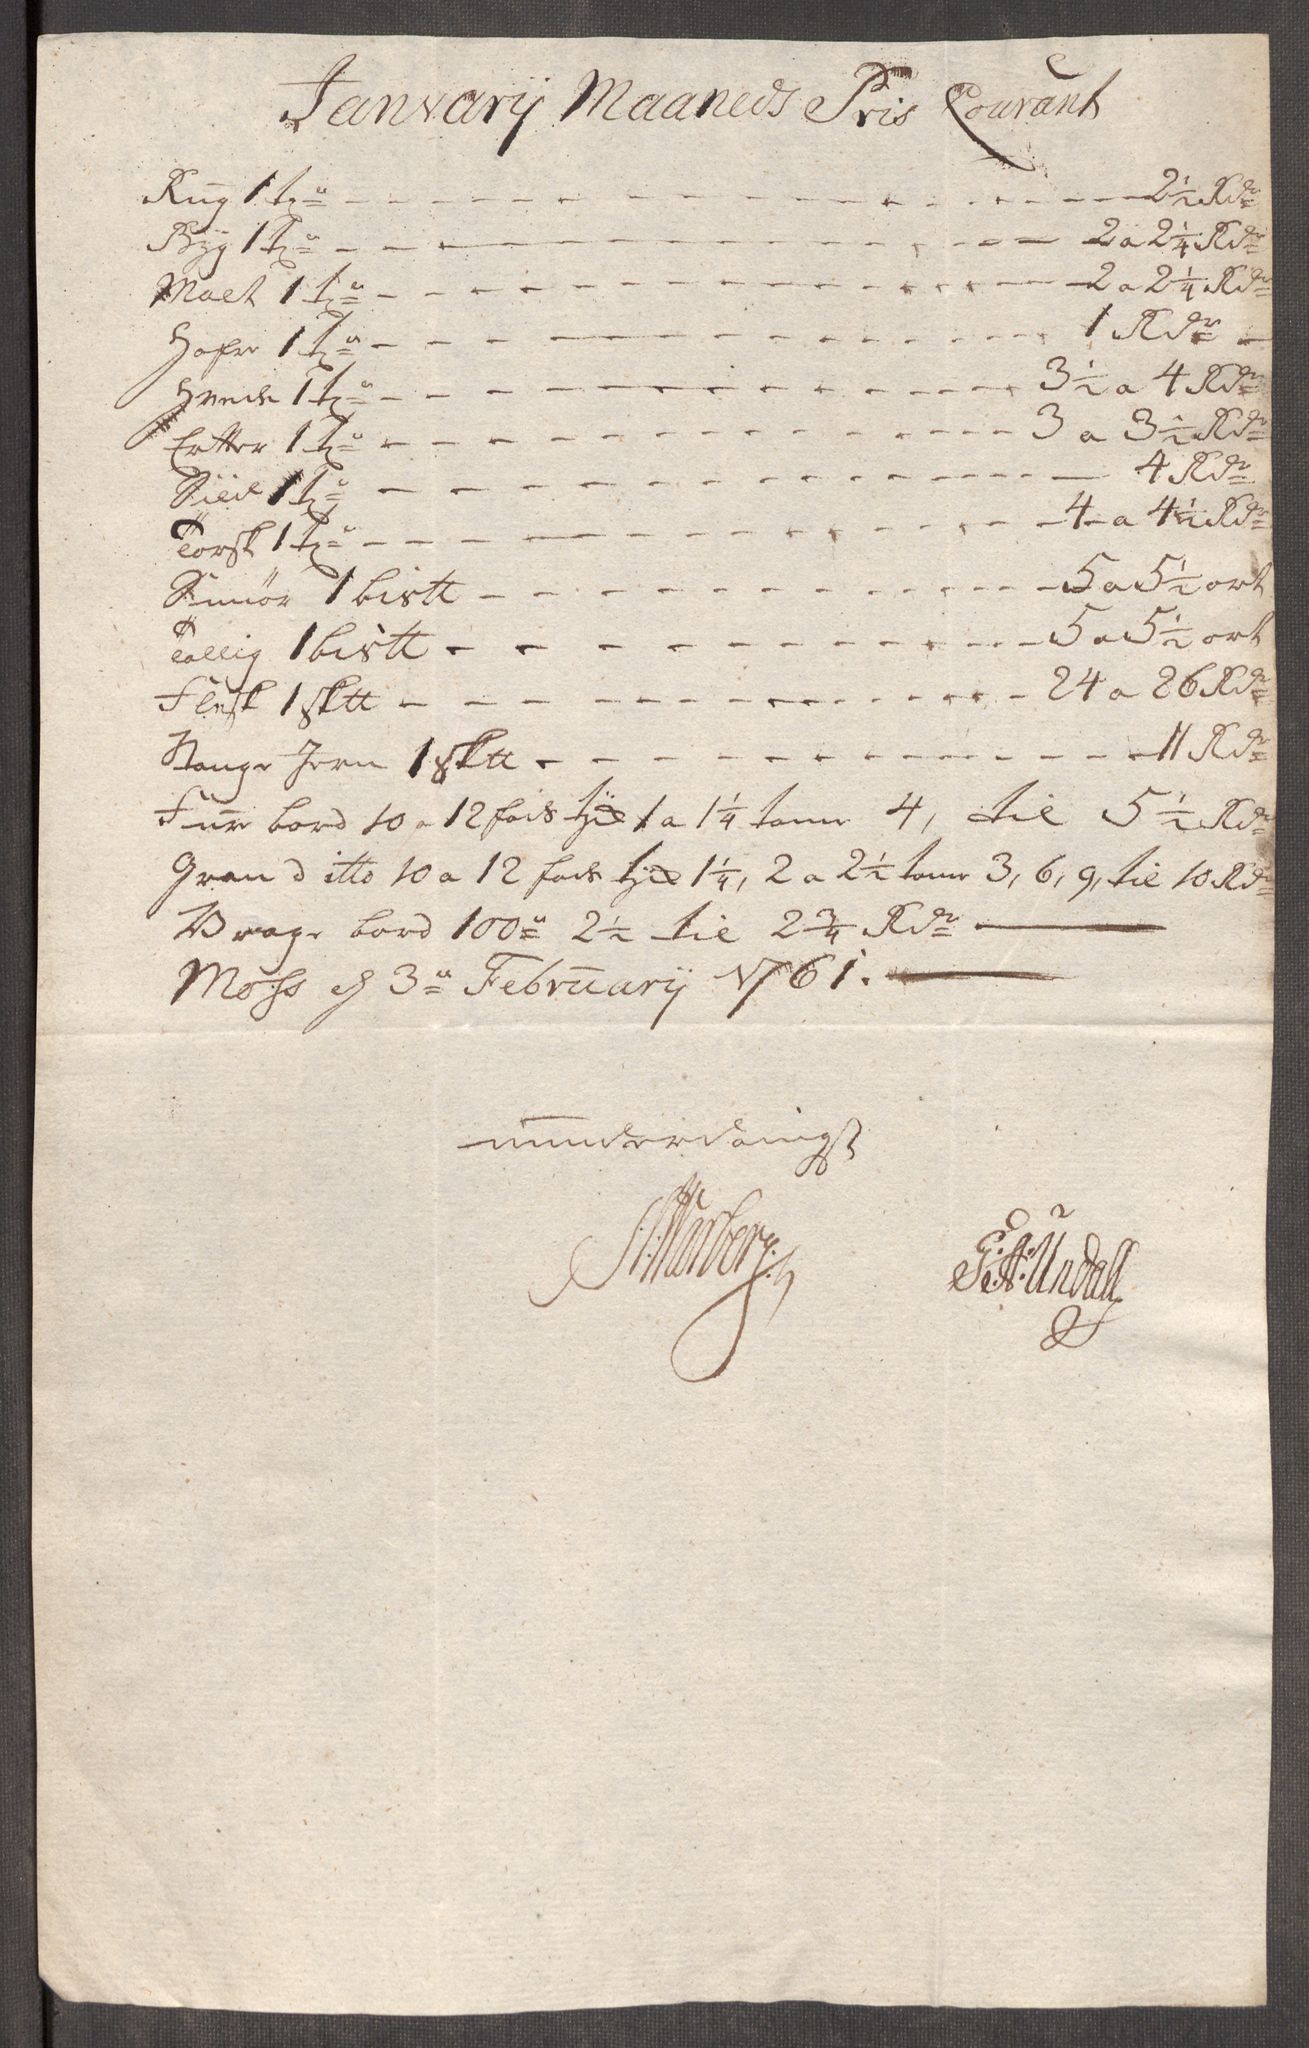 Januarij Maaneds Pris Courant
Rug 1 tr - - - 2½ Rdr
Byg 1 tr - - - 2 a 2¼ Rdr
Malt 1 tr - - - 2 a 2¼ Rdr
Hafre 1 tr - - - 1 Rdr
Hvede 1 tr - - - 3½ a 4 Rdr
Ertter 1 tr - - - 3 a 3½ Rdr
Sild 1 tr - - - 4 Rdr
Torsk 1 tr - - - 4 a 4½ Rdr
Smør 1 bistt - - - 5 a 5½ ort
Tallig 1 bistt - - - 5 a 5½ ort
Flesk 1 sktt - - - 24 a 26 Rdr
Stange Jern 1 sktt - - - 11 Rdr
Furre bord 10 a 12 fods 1 a 1¼ tomr 4, til 5½ Rdr
Gran ditto 10 a 12 fods 1¼, 2 a 2½ tomr 3, 6, 9, til 10 Rdr
Vrage bord 100 2½ til 2¾ Rdr
Moss d 3 Februarij 1761.
underdanigst
Warberg.
G: A: Undall